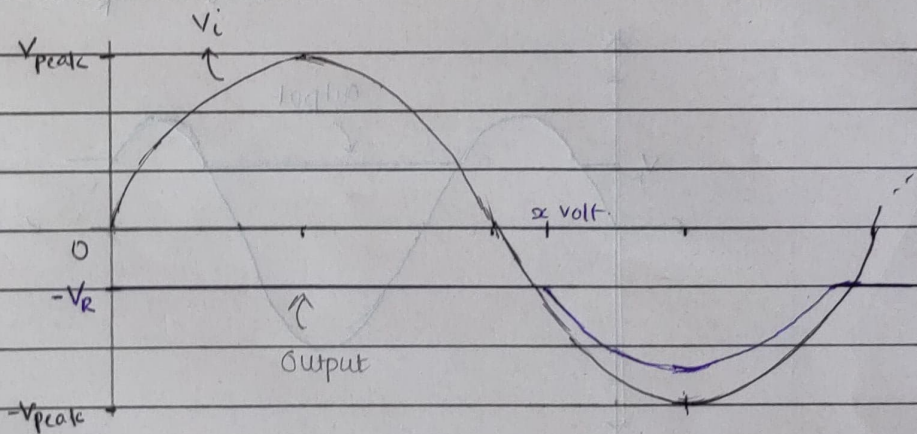 Vi
Vpeak
x volt.
0
-VR
Output
-Vpeak